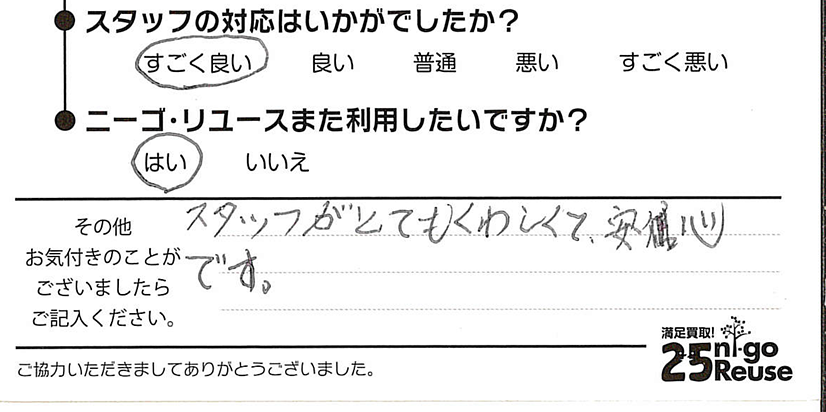 スタッフの対応はいかがでしたか？
すごく良い 良い 普通 悪い すごく悪い
ニーゴ・リユースまた利用したいですか？
はい いいえ
その他
お気付きのことが
ございましたら
ご記入ください。
スタッフがとてもくわしくて、安心
です。
ご協力いただきましてありがとうございました。
満足買取！
25 ni-go
Reuse